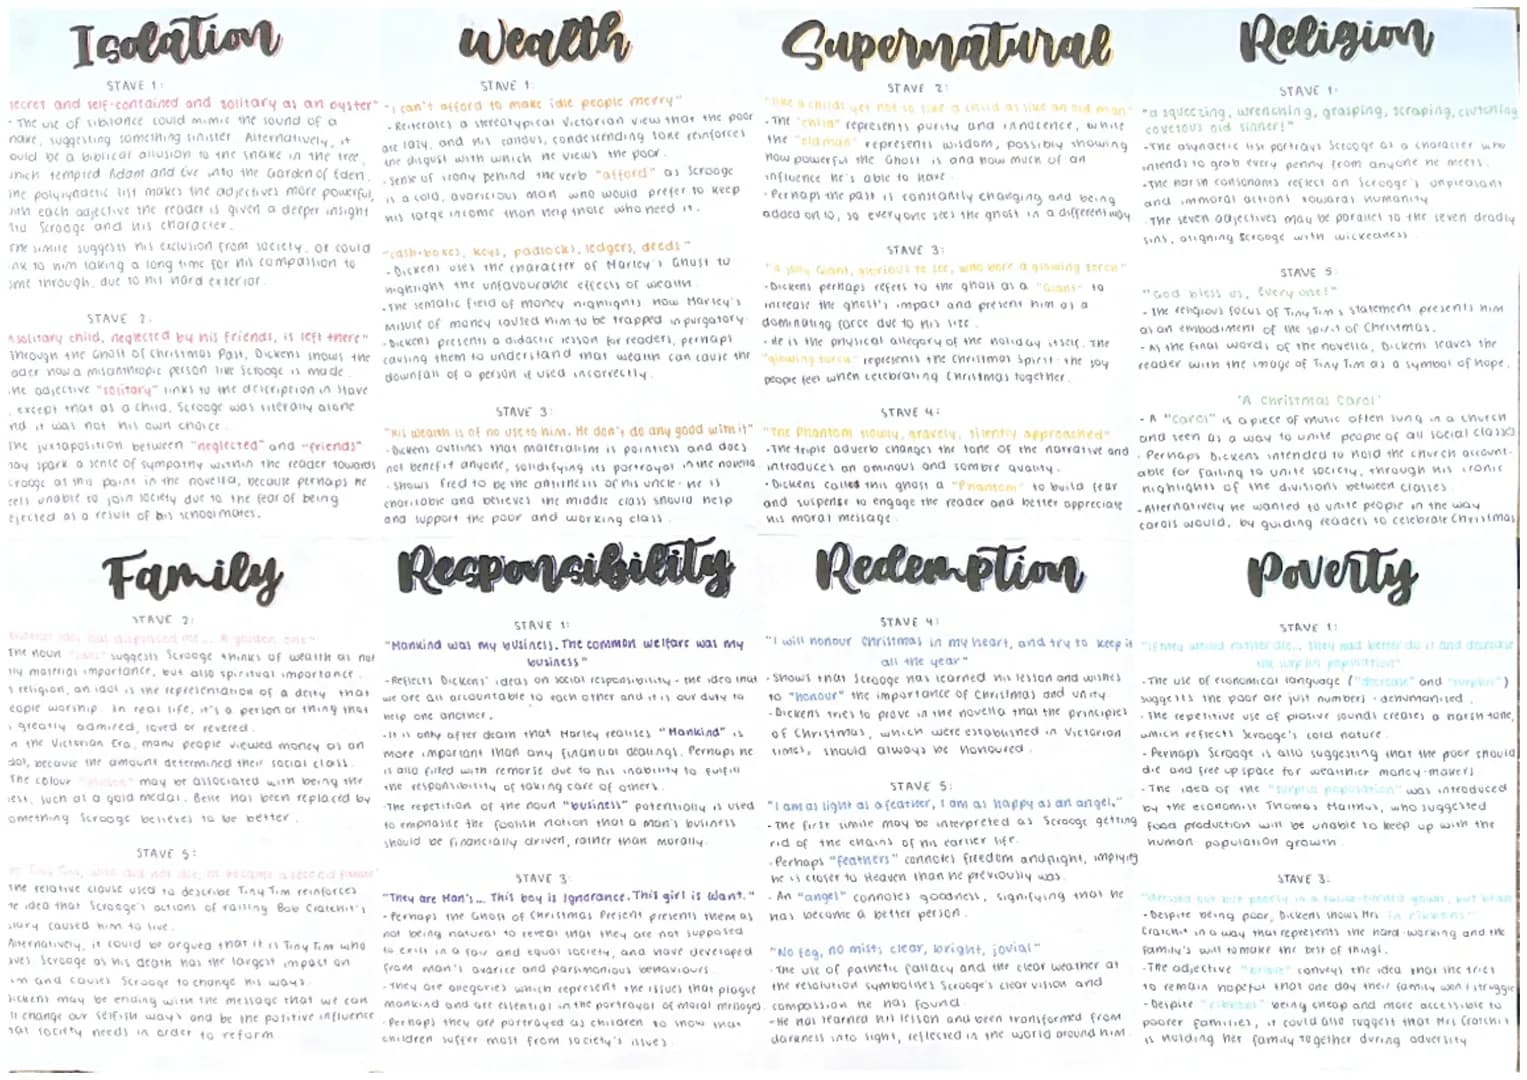 Isolation
STAVE 1:
secret and self-contained and solitary as an oyster"
- The use of sibilance could mimic the sound of a
nake, suggesting something sinister. Alternatively, it
ould be a biblical allusion to the snake in the tree,
which tempted Adam and Eve into the Garden of Eden.
he polysyndetic list makes the adjectives more powerful,
with each adjective the reader is given a deeper insight
Scrooge and his character.
he simile suggests his exclusion from society, or could
nk to him taking a long time for his compassion to
ome through, due to his hard exterior.
STAVE 2:
A solitary child, neglected by his friends, is left there"
Through the Ghost of Christmas Past, Dickens shows the
ader how a misanthropic person like Scrooge is made.
he adjective "solitary" links to the description in stave
, except that as a child, Scrooge was literally alone
nd it was not his own choice.
The juxtaposition between "neglected" and "friends"
may spark a sense of sympathy within the reader towards
crooge at this point in the novella, because perhaps he
eels unable to join society due to the fear of being
ejected as a result of his schoolmates.
Wealth
STAVE 1:
"I can't afford to make idle people merry"
- Reiterates a stereotypical Victorian view that the poor
are lazy, and his candus, condescending tone reinforces
the disgust with which he views the poor.
- Sense of irony behind the verb "afford" as Scrooge
is a cold, avaricious man who would prefer to keep
his large income than help those who need it.
"cash-boxes, keys, padlocks, ledgers, deeds"
- Dickens uses the character of Marley's Ghost to
highlight the unfavourable effects of wealth.
- The sematic field of money highlights how Marley's
misuse of money caused him to be trapped in purgatory.
- Dickens presents a didactic lesson for readers, perhaps
causing them to understand that wealth can cause the
downfall of a person if used incorrectly.
STAVE 3:
"His wealth is of no use to him. He don't do any good with it"
- Dickens outlines that materialism is pointless and does
not benefit anyone, solidifying its portrayal in the novella
- Shows Fred to be the antithesis of his uncle - he is
charitable and believes the middle class should help
and support the poor and working class.
Supernatural
STAVE 2:
"like a child; yet not so like a child as like an old man"
- The "child" represents purity and innocence, while
the "old man" represents wisdom, possibly showing
how powerful the Ghost is and how much of an
influence he's able to have.
- Perhaps the past is constantly changing and being
added on to, so everyone sees the ghost in a different way
STAVE 3:
"a jolly Giant, glorious to see, who bore a glowing torch"
- Dickens perhaps refers to the ghost as a "Giant" to
increase the ghost's impact and present him as a
dominating force due to his size.
- He is the physical allegory of the holiday itself. The
"glowing torch" represents the Christmas Spirit - the joy
people feel when celebrating Christmas together.
STAVE 4:
"The Phantom slowly, gravely, silently approached"
- The triple adverb changes the tone of the narrative and
introduces an ominous and sombre quality.
- Dickens called this ghost a "Phantom" to build fear
and suspense to engage the reader and better appreciate
his moral message.
Religion
STAVE 1:
"a squeezing, wrenching, grasping, scraping, clutching
covetous old sinner!"
- The asyndetic list portrays Scrooge as a character who
intends to grab every penny from anyone he meets.
- The harsh consonants reflect on Scrooge's unpleasant
and immoral actions towards humanity
- The seven adjectives may be parallel to the seven deadly
sins, aligning Scrooge with wickedness.
STAVE 5:
"God bless us, Every one!"
- The religious focus of Tiny Tim's statement presents him
as an embodiment of the spirit of Christmas.
- As the final words of the novella, Dickens leaves the
reader with the image of Tiny Tim as a symbol of hope.
'A Christmas Carol'
- A "Carol" is a piece of music often sung in a church
and seen as a way to unite people of all social classes
- Perhaps Dickens intended to hold the church account-
able for failing to unite society, through his ironic
highlights of the divisions between classes.
- Alternatively he wanted to unite people in the way
carols would, by guiding readers to celebrate Christmas
Family
STAVE 2:
idol has displaced me... A golden one"
The noun "idol" suggests Scrooge thinks of wealth as not
ly material importance, but also spiritual importance.
religion, an idol is the representation of a deity that
eople worship. In real life, it's a person or thing that
greatly admired, loved or revered.
n the Victorian Era, many people viewed money as an
idol, because the amount determined their social class.
The colour "golden" may be associated with being the
est, such as a gold medal. Belle has been replaced by
omething Scrooge believes to be better.
STAVE 5:
to Tiny Tim, who did not die, he became a second father"
The relative clause used to describe Tiny Tim reinforces
he idea that Scrooge's actions of raising Bob Cratchit's
alary caused him to live.
Alternatively, it could be argued that it is Tiny Tim who
aves Scrooge as his death has the largest impact on
im and causes Scrooge to change his ways.
Dickens may be ending with the message that we can
ll change our selfish ways and be the positive influence
hat society needs in order to reform.
Responsibility
STAVE 1:
"Mankind was my business. The common welfare was my
business"
- Reflects Dickens' ideas on social responsibility - the idea that
we are all accountable to each other and it is our duty to
help one another.
- It is only after death that Marley realises "Mankind" is
more important than any financial dealings. Perhaps he
is also filled with remorse due to his inability to fulfill
the responsibility of taking care of others.
- The repetition of the noun "business" potentially is used
to emphasise the foolish notion that a man's business
should be financially driven, rather than morally.
STAVE 3:
"They are Man's... This boy is Ignorance. This girl is Want."
- Perhaps the Ghost of Christmas Present presents them as
not being natural to reveal that they are not supposed
to exist in a fair and equal society, and have developed
from man's avarice and parsimonious behaviours.
- They are allegories which represent the issues that plague
mankind and are essential in the portrayal of moral messages.
- Perhaps they are portrayed as children to show that
children suffer most from society's issues.
Redemption
STAVE 4:
"I will honour Christmas in my heart, and try to keep it
all the year"
- Shows that Scrooge has learned his lesson and wishes
to "honour" the importance of Christmas and unity.
- Dickens tries to prove in the novella that the principles
of Christmas, which were established in Victorian
times, should always be honoured.
STAVE 5:
"I am as light as a feather, I am as happy as an angel,"
- The first simile may be interpreted as Scrooge getting
rid of the chains of his earlier life.
- Perhaps "feathers" connotes freedom and flight, implying
he is closer to Heaven than he previously was.
- An "angel" connotes goodness, signifying that he
has become a better person.
"No fog, no mist; clear, bright, jovial"
- The use of pathetic fallacy and the clear weather at
the resolution symbolises Scrooge's clear vision and
compassion he has found.
- He has learned his lesson and been transformed from
darkness into light, reflected in the world around him.
Poverty
STAVE 1:
"If they would rather die... they had better do it and decrease
the surplus population"
- The use of economical language ("decrease" and "surplus")
suggests the poor are just numbers - dehumanised.
- The repetitive use of plosive sounds creates a harsh tone,
which reflects Scrooge's cold nature.
- Perhaps Scrooge is also suggesting that the poor should
die and free up space for wealthier money-makers.
- The idea of the "surplus population" was introduced
by the economist Thomas Malthus, who suggested
food production will be unable to keep up with the
human population growth.
STAVE 3:
"dressed out but poorly in a twice-turned gown, but brave
- Despite being poor, Dickens shows Mrs in ribbons"
Cratchit in a way that represents the hard-working and the
family's will to make the best of things.
- The adjective "brave" conveys the idea that she tries
to remain hopeful that one day their family won't struggle
- Despite "ribbons" being cheap and more accessible to
poorer families, it could also suggest that Mrs Cratchit
is holding her family together during adversity